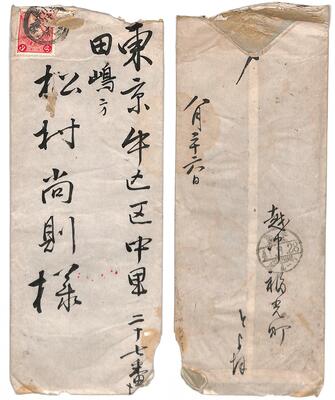 東京牛込区中里二十七番
田嶋方
松村尚則様
八月二十六日
越中福光町